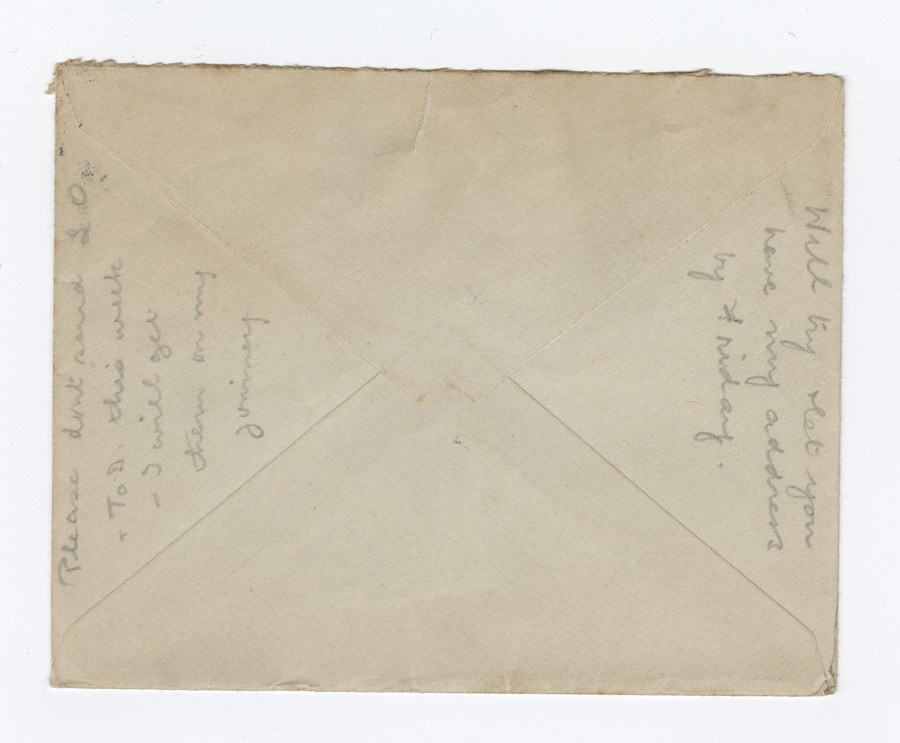 Please dont send I.O.
- To D. this week
- I will get
them on my
joinery
Will try & let you
have my address
by Friday.